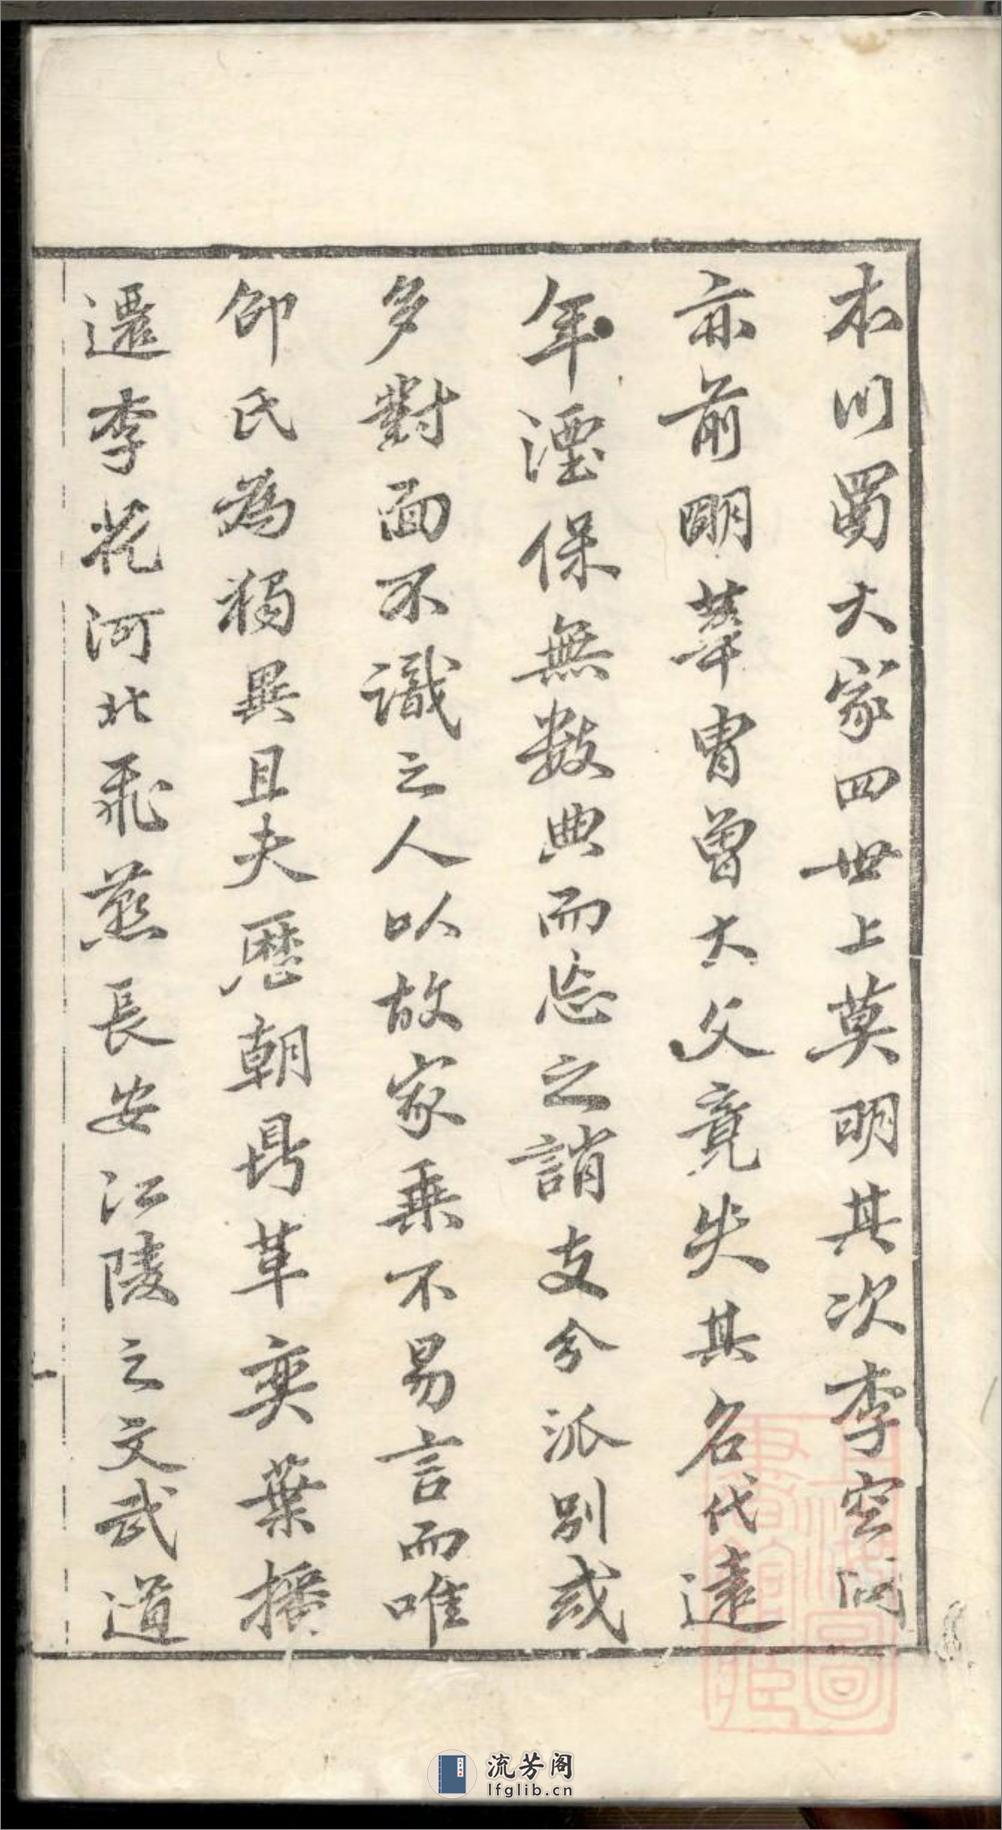 本川蜀大家四世上莫明其次李空同
亦前明華胄曾大父竟失其名代遠
年湮保無數典而忘之誚支分派別或
多對面不識之人以故家乗不易言而唯
邵氏為獨異且夫歷朝鼎革奕葉播
遷李花河北飛燕長安江陵之文武道
一
流芳阁
lfglib.cn